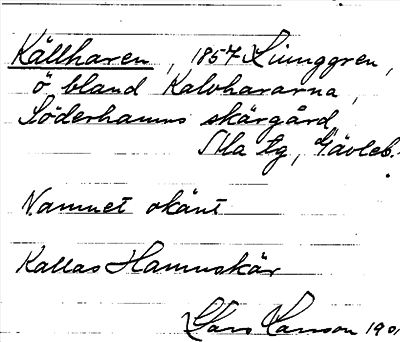 Källharen, 1857 Ljunggren,
ö bland Kalvhararna,
Söderhamns skärgård,
Ala tg, Gävleb.
Namnet okänt
Kallas Hamnskär
Lars Hanson 190